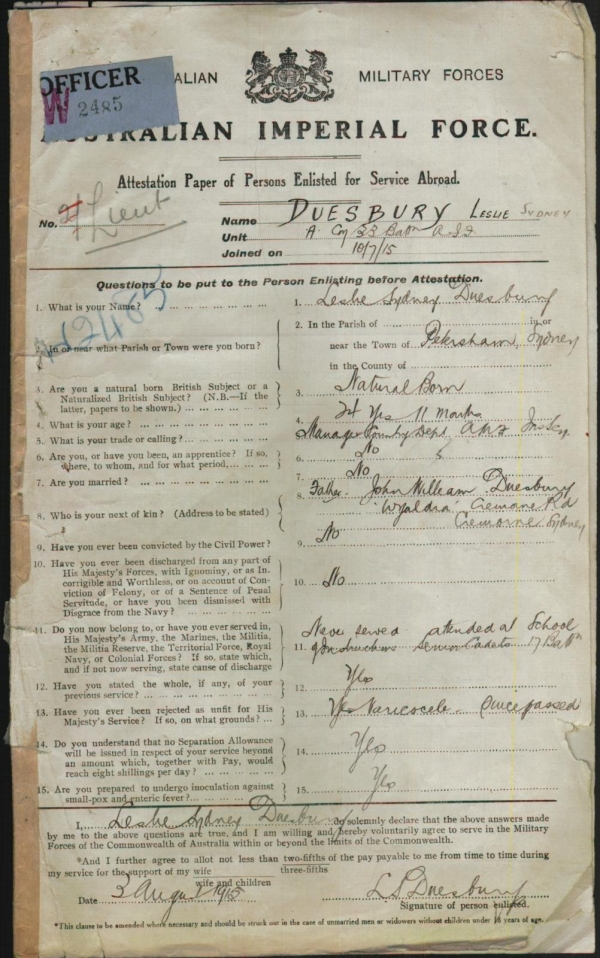 OFFICER
W 2485
ALIAN MILITARY FORCES
AUSTRALIAN IMPERIAL FORCE.
Attestation Paper of Persons Enlisted for Service Abroad.
No. Lieut
Name DUESBURY LESLIE SYDNEY
Unit A Coy 33 Battn A.I.F
Joined on 10/7/15
Questions to be put to the Person Enlisting before Attestation.
1. What is your Name? 1. Leslie Sydney Duesbury
2. In or near what Parish or Town were you born? 2. In the Parish of in or
near the Town of Petersham, Sydney
in the County of
3. Are you a natural born British Subject or a
Naturalized British Subject? (N.B.—If the
latter, papers to be shown.) 3. Natural Born
4. What is your age? 4. 24 Yrs 11 Months
5. What is your trade or calling? Manager Country Dept
6. Are you, or have you been, an apprentice? If so,
where, to whom, and for what period, 6. No
7. Are you married? 7. No
8. Who is your next of kin? (Address to be stated) 8. Father. John William Duesbury
Cremorne Rd
Cremorne Sydney
9. Have you ever been convicted by the Civil Power? 9. No
10. Have you ever been discharged from any part of
His Majesty's Forces, with Ignominy, or as In-
corrigible and Worthless, or on account of Con-
viction of Felony, or of a Sentence of Penal
Servitude, or have you been dismissed with
Disgrace from the Navy? 10. No
11. Do you now belong to, or have you ever served in,
His Majesty's Army, the Marines, the Militia,
the Militia Reserve, the Territorial Force, Royal
Navy, or Colonial Forces? If so, state which,
and if not now serving, state cause of discharge
Never served attended at School
11. of Instructions Senior Cadets 17 Battn
12. Have you stated the whole, if any, of your
previous service? 12. Yes
13. Have you ever been rejected as unfit for His
Majesty's Service? If so, on what grounds? 13. Yes Varicocele. Since passed
14. Do you understand that no Separation Allowance
will be issued in respect of your service beyond
an amount which, together with Pay, would
reach eight shillings per day? 14. Yes
15. Are you prepared to undergo inoculation against
small-pox and enteric fever? 15. Yes
I, Leslie Sydney Duesbury do solemnly declare that the above answers made
by me to the above questions are true, and I am willing and hereby voluntarily agree to serve in the Military
Forces of the Commonwealth of Australia within or beyond the limits of the Commonwealth.
*And I further agree to allot not less than two-fifths of the pay payable to me from time to time during
three-fifths
my service for the support of my wife
wife and children
Date 2 August 1915 L S Duesbury
Signature of person enlisted.
*This clause to be amended where necessary and should be struck out in the case of unmarried men or widowers without children under 18 years of age.